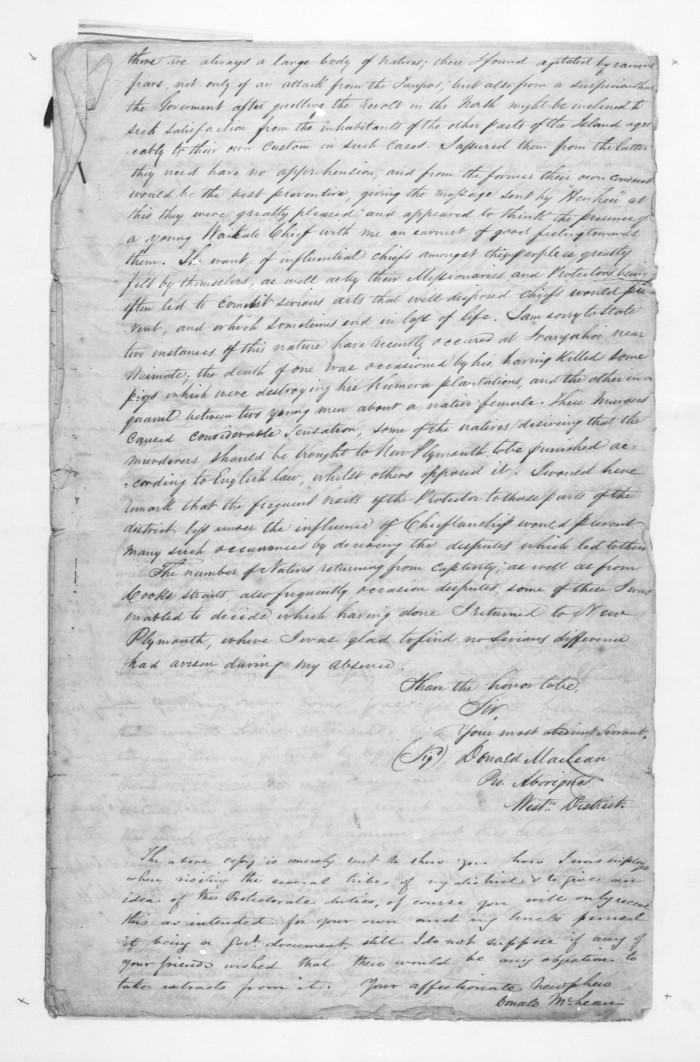 there are always a large body of natives; these I found agitated by various
fears, not only of an attack from the Taupos, but also from a suspicion that
the Goverment after quelling the revolt in the North might be inclined to
seek satisfaction from the inhabitants of the other parts of the Island agre
-eably to their own Custom in such cases. I assured them from the latter
they need have no apprehension, and from the former their own conduct
would be the best preventive, giving the message sent by "Heuheu" at
this they were greatly pleased and appeared to think the presence of
a young Waikato Chief with me an earnest of good feeling towards
them. The want of influential chiefs amongst these people is greatly
felt by themselves, as well as by their Missionaries and Protectors being
often led to commit serious acts that well disposed chiefs would pre-
vent, and which sometimes end in loss of life. I am sorry to state
two instances of this nature have recently occured at near
Waimate; the death of one was occasioned by his having killed some
pigs which were destroying his kumera plantations, and the other in a
quarrel between two young men about a native female. These murders
caused considerable sensation, some of the natives desiring that the
murderers should be brought to New Plymouth to be punished ac-
-cording to English law, whilst others opposed it. I would here
remark that the frequent visits of the Protector to those parts of the
district less under the influence of Chieftanship would prevent
many such occurances by deciding the disputes which led to them
The number of Natives returning from captivity, as well as from
Cooks Straits, also frequently occasion disputes, some of these I was
enabled to decide which having done I returned to New
Plymouth, where I was glad to find no serious difference
had arisen during my absence.
I have the honor to be,
Sir,
Your most obedient Servant,
(Sigd) Donald MacLean
Pro. Aborigines
Westn District.
The above copy is merely sent to show you how I was employed
when visiting the several tribes of my district & to give an
idea of the Protectorate duties, of course you will only receive
this as intended for your own and my uncles perusal
it being a Govt. document still I do not suppose if any of
your friends wished that there would be any objection to
take extracts from it. Your affectionate Newphew
Donald McLean